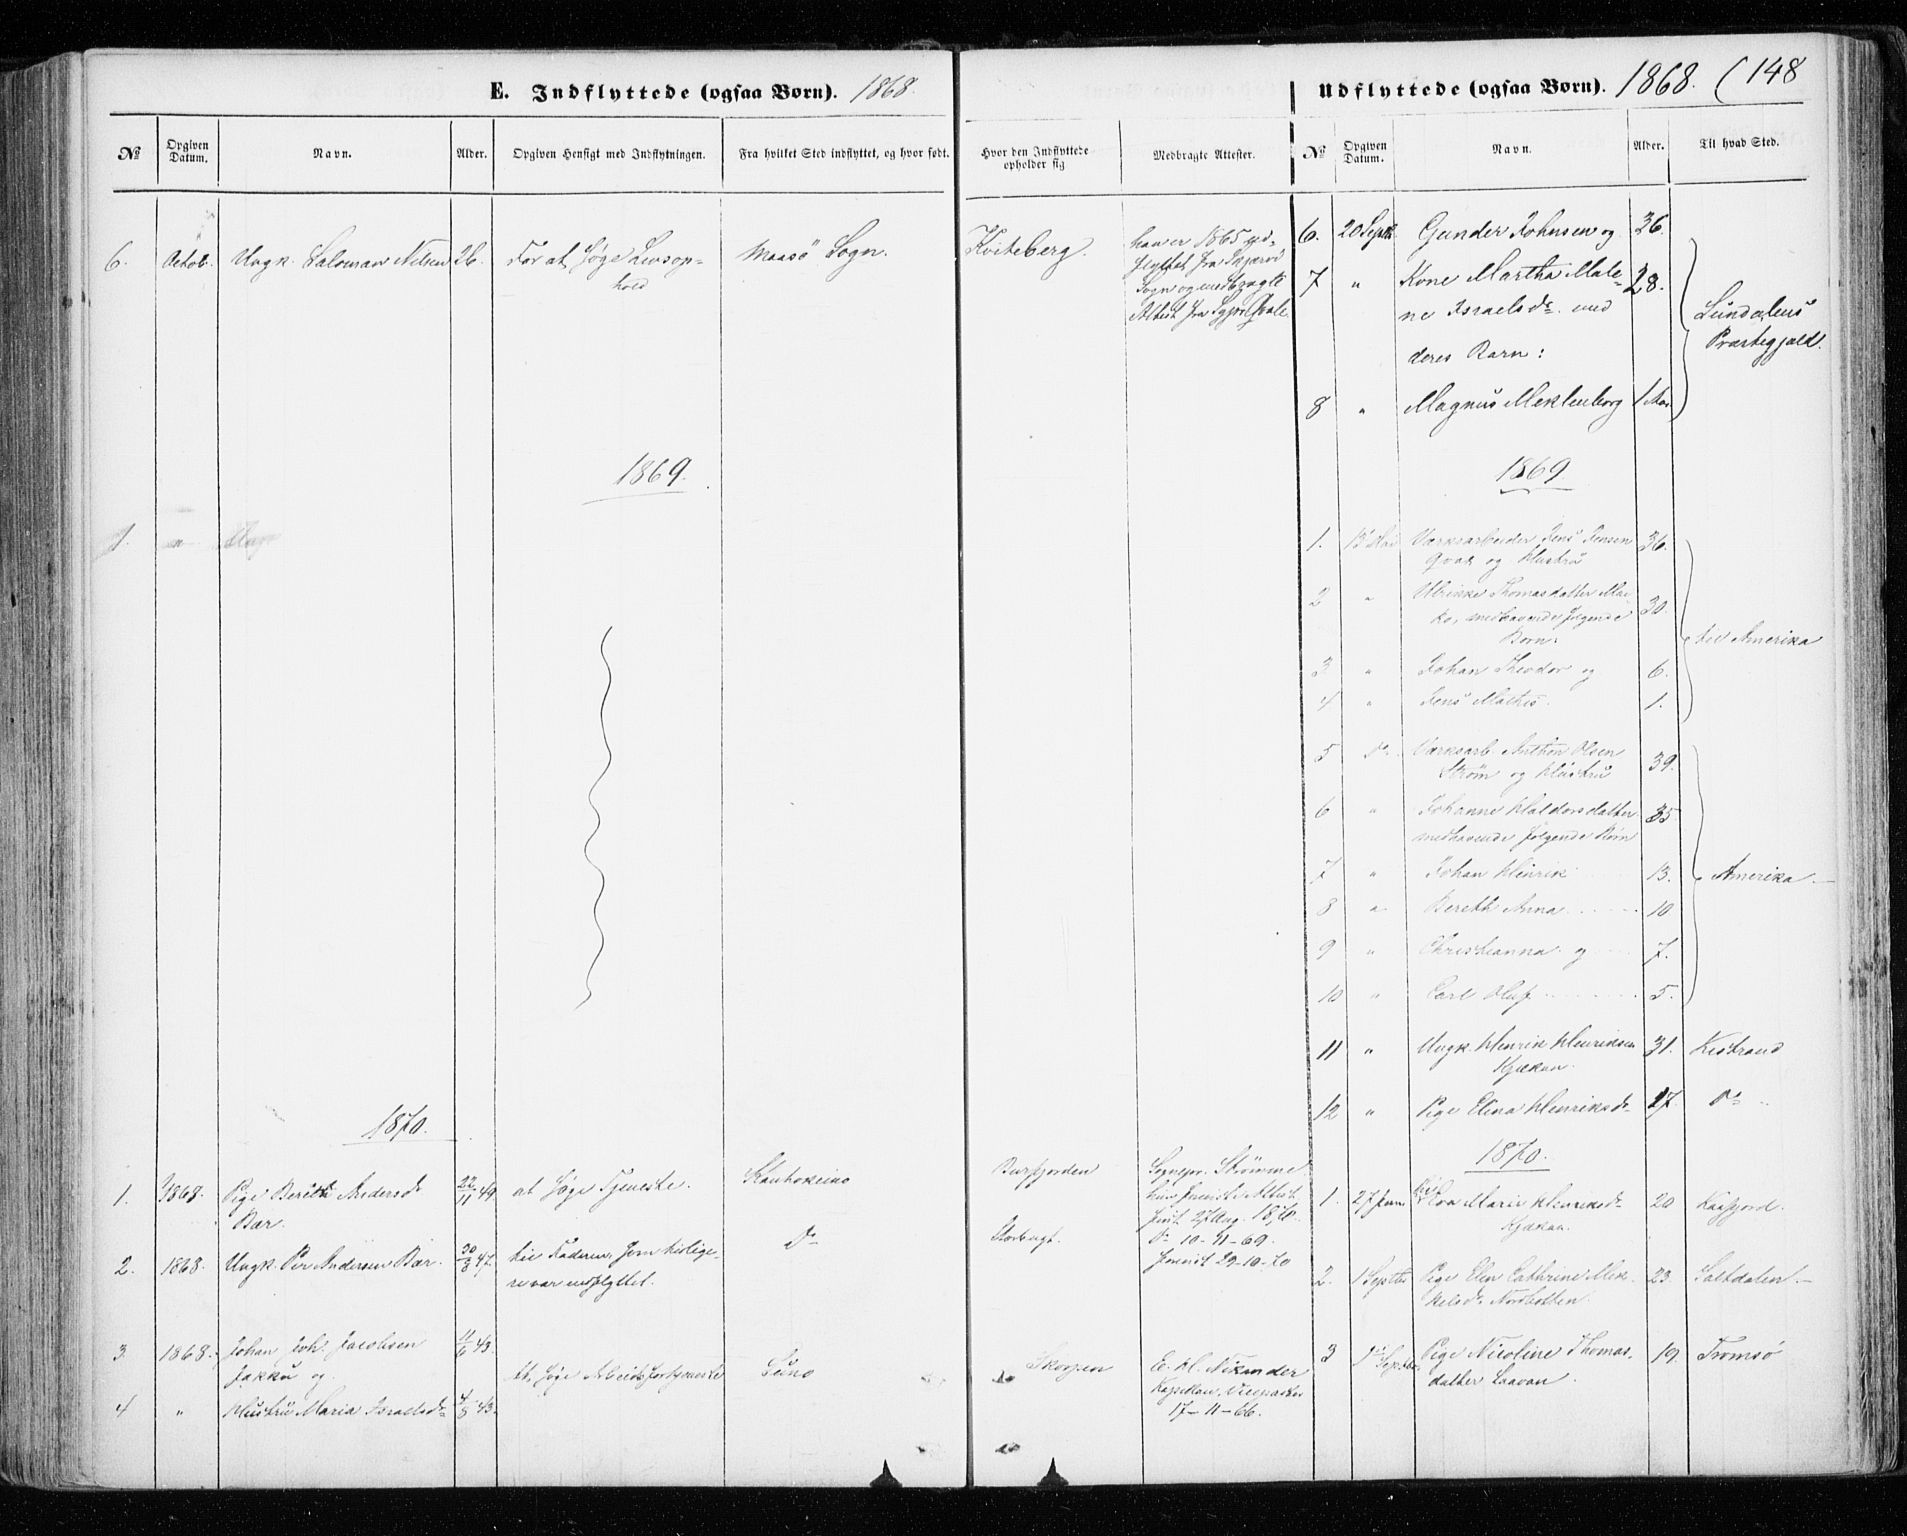 E. Indflyttede (ogsaa Børn). 1868.
№ Opgiven Datum. Navn. Alder. Opgiven Hensigt med Indflytningen. Fra hvilket Sted indflyttet, og hvor født.
Hvor den Indflyttede opholder sig Medbragte Attester.
6. Octob. Ungk. Saloman Nilsen 26. For at søge Livsop-
hold
Maasö Sogn.
Kviteberg.
han er 1865 ud-
flyttet fra Skjærvø
Sogn og medbragte
Attest fra
1869.
1. "
1870.
1. 1868. Pige Berith Andersdr 22/11 49 at søge Tjeneste. Kautokeino Burfjorden Sognepr. Strømme
Bær.
27 Aug. 1870.
2. 1868. Ungk. Per Andersen Bær. 30/3 47. hvis Fader, som tidlige-
re var indflyttet.
Do Storbugt. Do 10-11-69.
29-10-70
3. 1868. Johan Joh. Jacobsen 11/6 43.
Jakku og
At søge Arbeidsfortjeneste Skorpen
4 " Hustru Maria Israelsdr 4/8 43.
17-11-66.
Udflyttede (ogsaa Børn). 1868. (148
№ Opgiven Datum. Navn. Alder. Til hvad Sted.
6. 20 Septb. Gunder Johnsen og 36.
7 " Kone Martha Male- 28.
ne Israelsdr med
deres Barn:
8 " Magnus Meklenborg 1 Aar
Præstegjæld.
1869
1. 13 Mai Værksarbeider Jens Jensen 36.
Qvæn og Hustru
2 " Ulrikke Thomasdatter 30.
medhavende følgende
Børn:
3 " Johan Theodor og 6.
4 " Jens Mathis. 1.
til Amerika
5 Do Værksarb. Anthon Olsen 39.
Strøm og Hustru
6 " Johanne Haldorsdatter 35
medhavende følgende Børn
7 " Johan Hinrik 13.
8 " Bereth Anna 10
9 " Christianna og 7.
10 " Carl Oluf 5.
Amerika
11 " Ungk. Henrik Henriksen 31. Kistrand
Kjækan.
12 " Pige Elina Henriksdr 27. Do
1870.
1. 27 Juni Pige Eva Marie Henriksdr 20 Kaafjord.
Kjækan.
2. 1 Septbr Pige Elen Cathrine Mik- 23. Saltdalen
kelsdr Nordbotten.
3 Do Septbr Pige Nicoline Thomas- 19. Tromsö
datter Laavan.